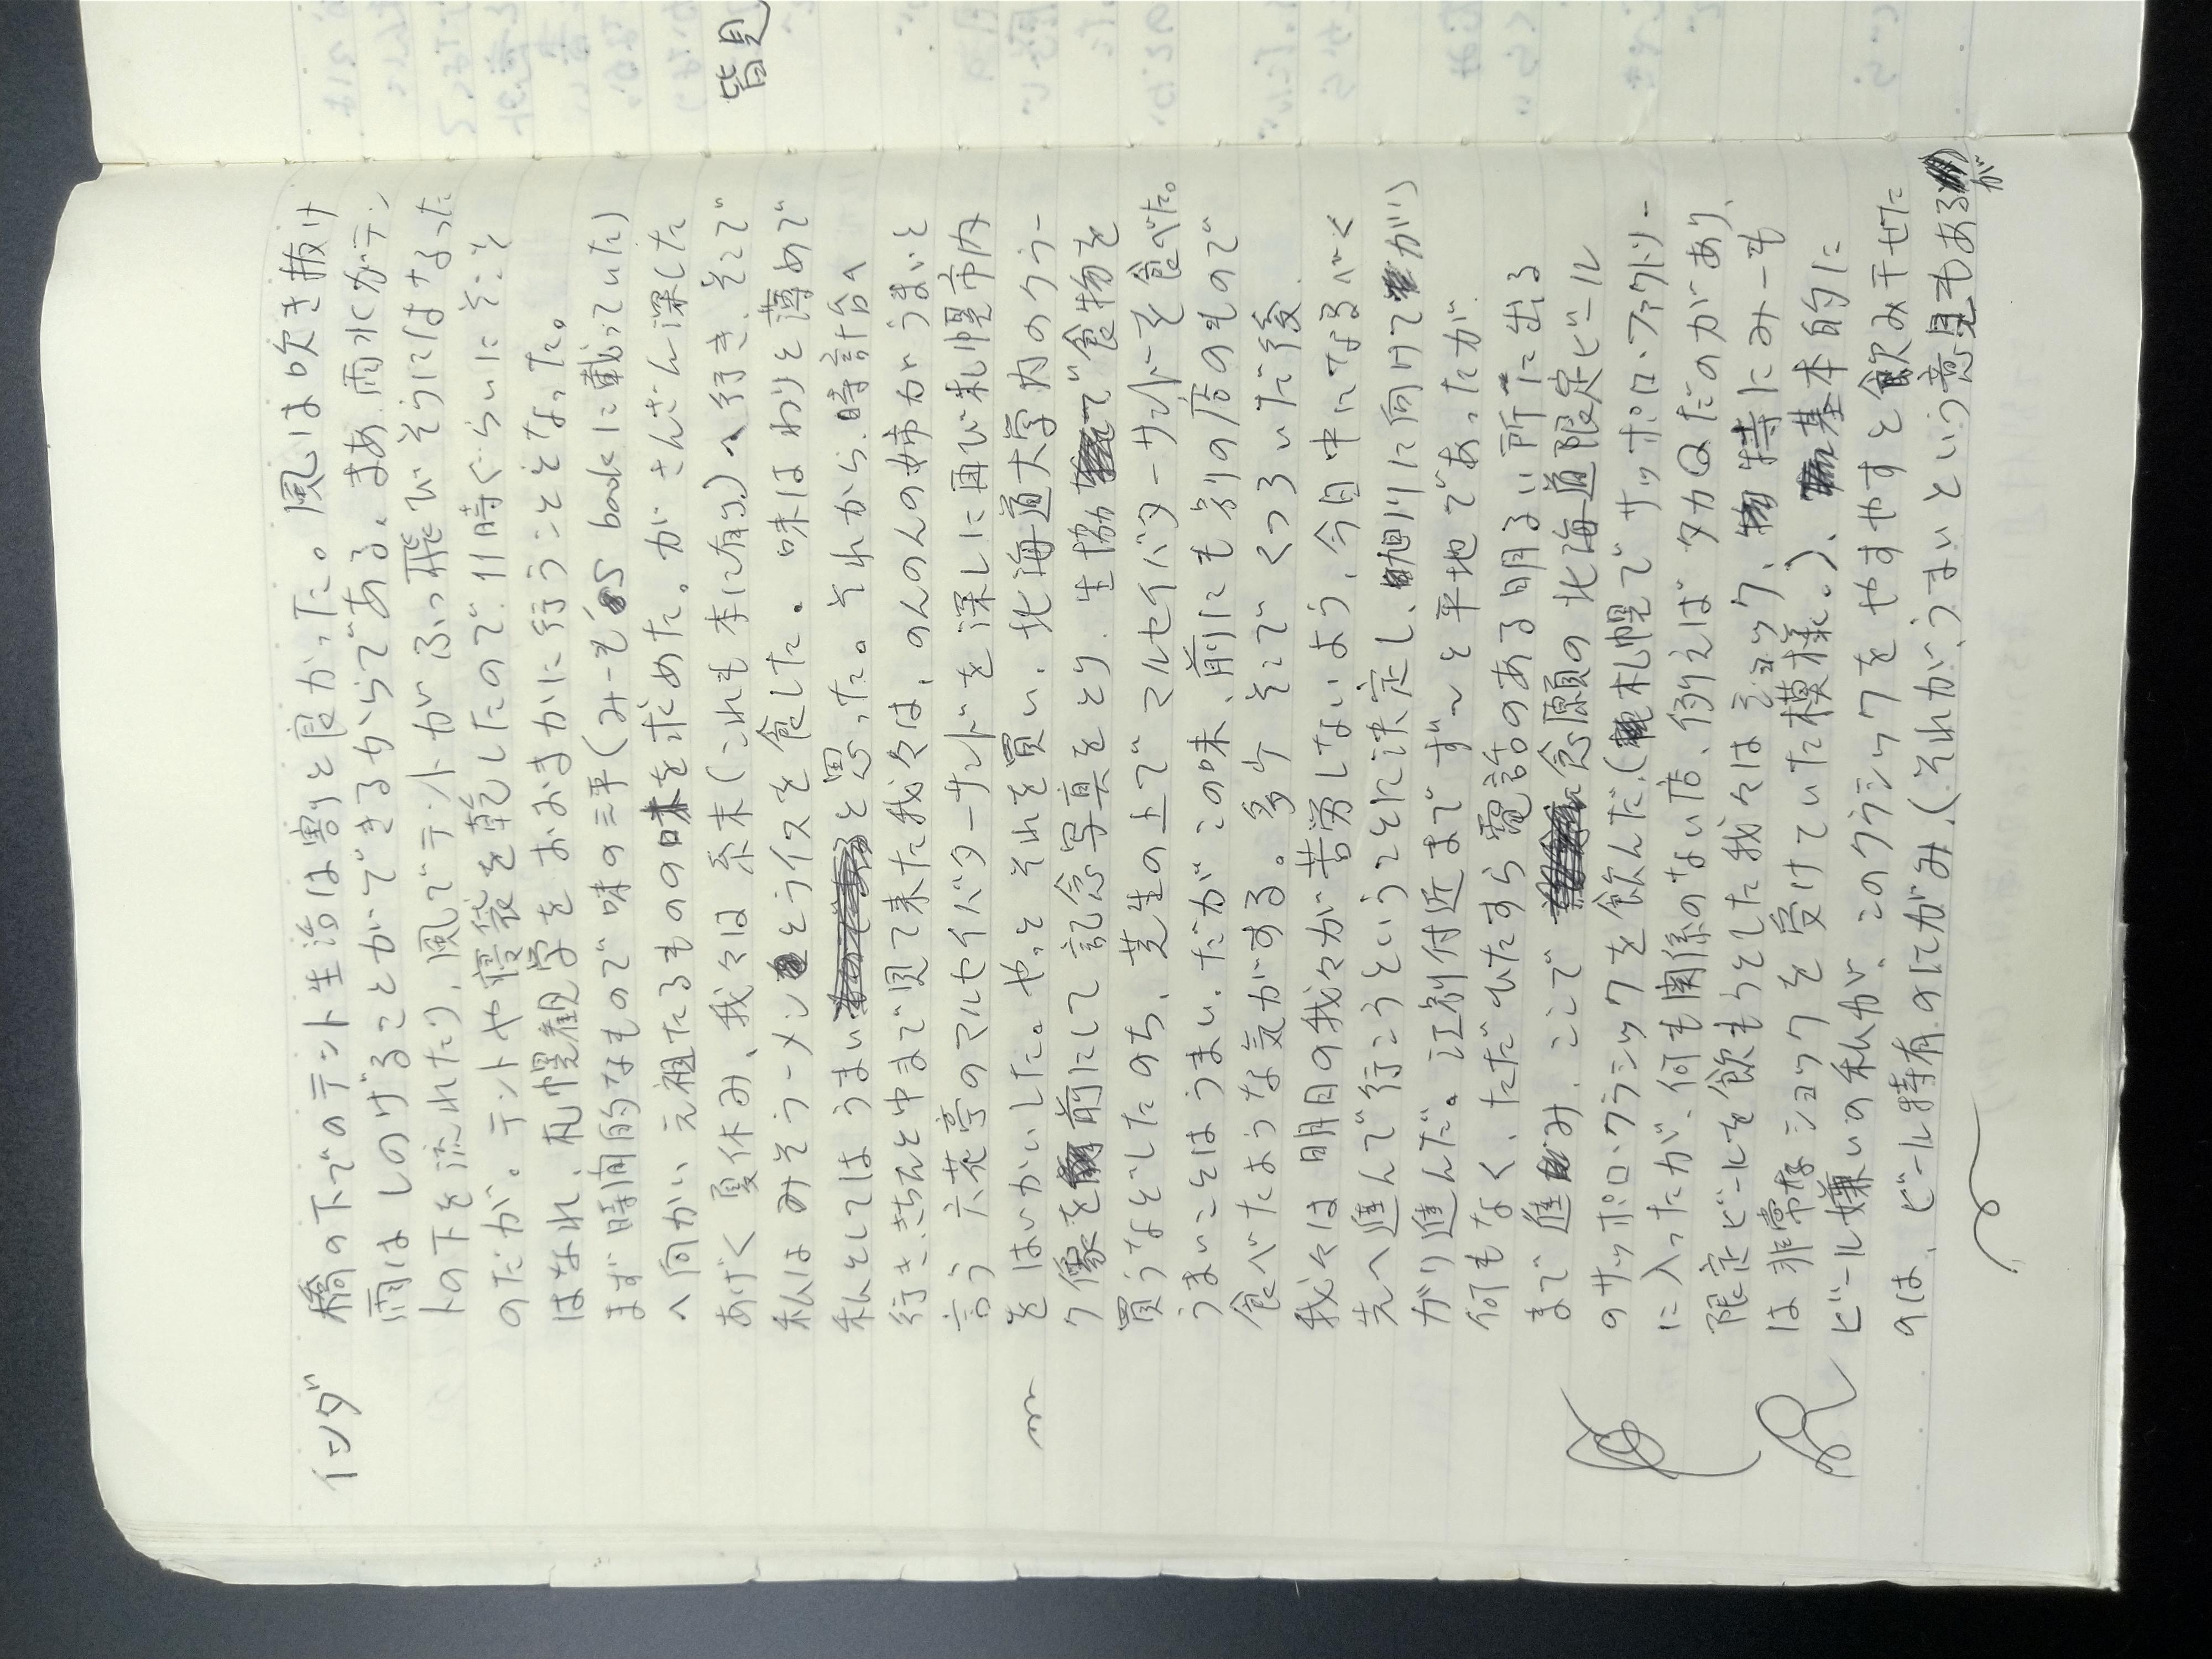 インダ 橋の下でのテント生活は割と良かった。風は吹き抜け
雨はしのげることができるからである。まあ、雨水がテン
トの下を流れたり、風でテントがふっ飛びそうにはなった
のだが。テントや寝袋を乾したので、11時ぐらいにそこを
はなれ、札幌観学をおおまかに行うこととなった。
まず時間的なもので味の三平(みーも's bookに載っていた)
へ向かい元祖たるものの味を求めた。がさんざん探した
あげく夏休み、我々は系末(これも本に有り)へ行き、そこで
私はみそラーメンとライスを食した。味はわりと薄めで
私としてはうまいと思った。それから、時計台へ
行ききちんと中まで見て来た我々は、のんのんの姉がうまいと
言う六花亭のマルセイバターサンドを探しに再び札幌市内
をはいかいした。やっとそれを買い、北海道大学内のクラー
ク像を前にして記念写真をとり、生協で食物を
買うなどしたのち、芝生の上でマルセイバターサンドを食べた。
うまいことはうまい。だがこの味、前にも別の店のもので
食べたような気がする。多少そこでくつろいだ後、
我々は明日の我々が苦労しないよう、今日中になるべく
先へ進んで行こうということに決定し、旭川に向けて(がり)
がり進んだ。江別付近までず〜と平地であったが、
何もなく、ただひたすら電話のある明るい所に出る
まで進み、ここで念願の北海道限定ビール
のサッポロ・クラシックを飲んだ。(札幌でサッポロ・ファクトリー
に入ったが、何も関係のない店、例えばタカQだのがあり、
限定ビールを飲もうとした我々はショック、特にみーも
は非常なショックを受けていた模様。)、基本的に
ビール嫌いの私が、このクラシックをやすやすと飲み干せた
のは、ビール特有のにがみ、(それが、うまいという意見もあるが
皆見